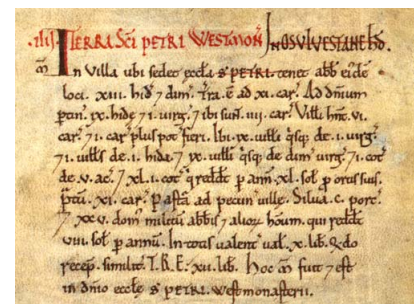 .iiij. TERRA SCI PETRI WESTMON̄ IN OSULVESTANE HD̄.
m̄ In Villa ubi sedet æccła S PETRI. tenet abb eiđe
loci. xiii. hid̄ ⁊ dim̄. Tr̄a. ē ad xi. car̄. Ad dn̄ium
ptin̄. ix. hidę ⁊ i. virg̃. ⁊ ibi sunt. iiii. car̄. Villi hn̄t. vi.
car̄. ⁊ i. car̄ plus pot̃ fieri. Ibi. ix. uilłi q̄sq; de. i. uirg̃.
⁊ i. uilłs de. i. hida. ⁊ ix. uilłi q̄sq; de dim̄ virg̃. ⁊ i. cot̃
de. v. ac̄. ⁊ xl.i. cot̃ qͥ reddt̃ p ann̄. xl. soł. p ortis suis.
p̃tū. xi. car̄. pasta. ad pecun̄ uillę. Silua. c. porc̃.
⁊ xxv. dom̄ militū abbis ⁊ alioꝝ hōum. qui reddt̃
viii. soł p annū. In totis ualent̃ uał. x. lib̄. Qđo
recep̄. similit̃. T.R.E. xii. lib̄. Hoc m̄ fuit ⁊ est
in dn̄io æccłę S PETRI. westmonasterii.